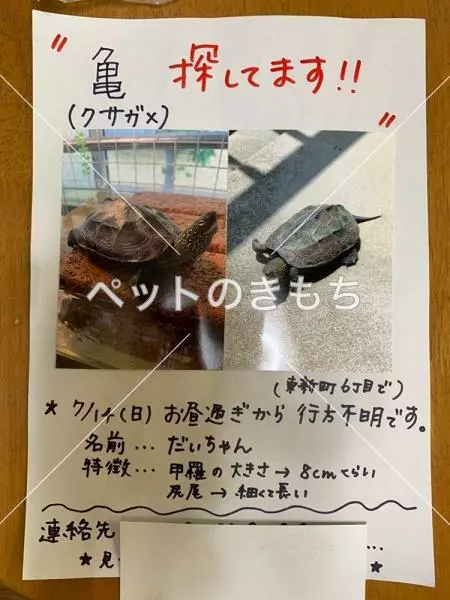 " 亀 探してます!! "
(クサガメ)
ペットのきもち
(東新町6丁目で)
★ 7/14(日) お昼過ぎから 行方不明です。
名前 … だいちゃん
特徴 … 甲羅の大きさ → 8cmくらい
尻尾 → 細くて長い
連絡先
★見